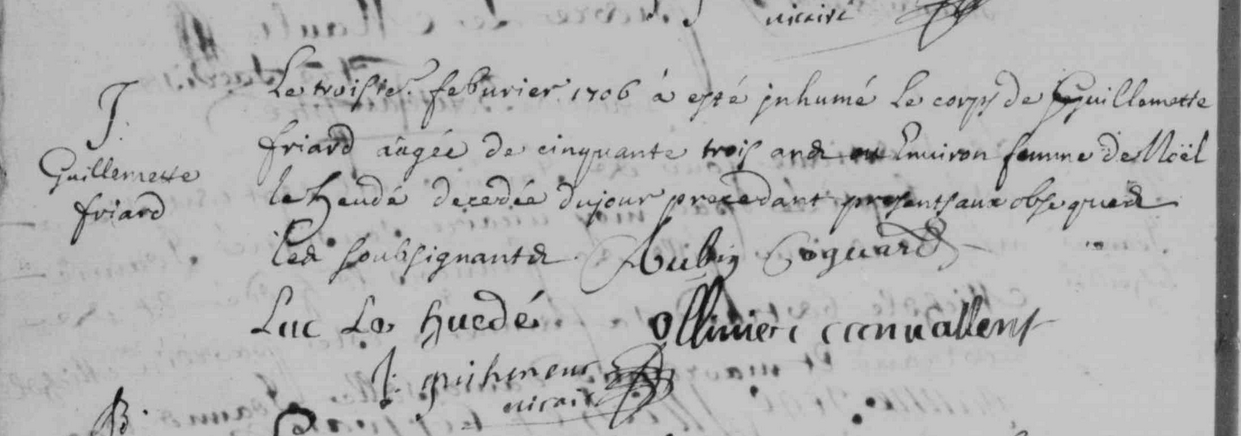 vicaire
Le troisie. febvrier 1706 à esté inhumé Le corps de Guillemette
J.
friard aâgée de cinquante trois ans ou Environ femme de Noël
Guillemette
friard
le heudé decedée du jour precedant presents aux obseques
Les soubsignants Aubin Coquard
Luc Le huedé Ollivier Convallent
J. guiheneuc
vicaire
B.